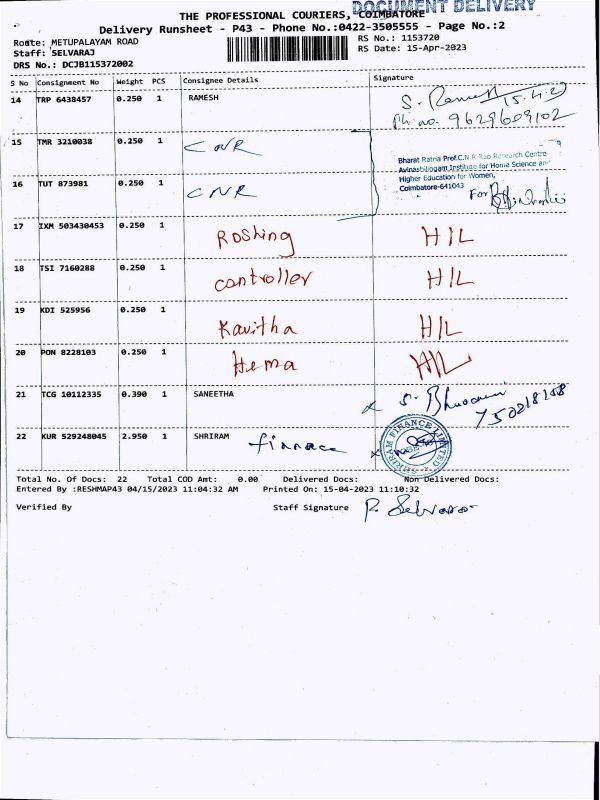 DOCUMENT DELIVERY
THE PROFESSIONAL COURIERS, COIMBATORE
Delivery Runsheet - P43 - Phone No.:0422-3505555 - Page No.:2
Route: METUPALAYAM ROAD
RS No.: 1153720
Staff: SELVARAJ
RS Date: 15-Apr-2023
DRS No.: DCJB115372002
S No Consignment No Weight PCS Consignee Details Signature
14 TRP 6438457 0.250 1 RAMESH S. Ramesh 15.4.2
Ph no. 9629609102
15 TMR 3210038 0.250 1 CNR
Bharat Ratna Prof.C.N R Rao Research Centre
Avinashilingam Institute for Home Science and
16 TUT 873981 0.250 1 CNR Higher Education for Women,
Coimbatore-641043 For
17 IXM 503430453 0.250 1 Roshing H/L
18 TSI 7160288 0.250 1 controller H/L
19 KDI 525956 0.250 1 Kavitha H/L
20 PON 8228103 0.250 1 Hema H/L
21 TCG 10112335 0.390 1 SANEETHA S. Bhuvani
22 KUR 529248045 2.950 1 SHRIRAM finnace SHRIRAM FINANCE LIMITED
Total No. Of Docs: 22 Total COD Amt: 0.00 Delivered Docs: Non Delivered Docs:
Entered By :RESHMAP43 04/15/2023 11:04:32 AM Printed On: 15-04-2023 11:10:32
Verified By Staff Signature P. Selvaraj